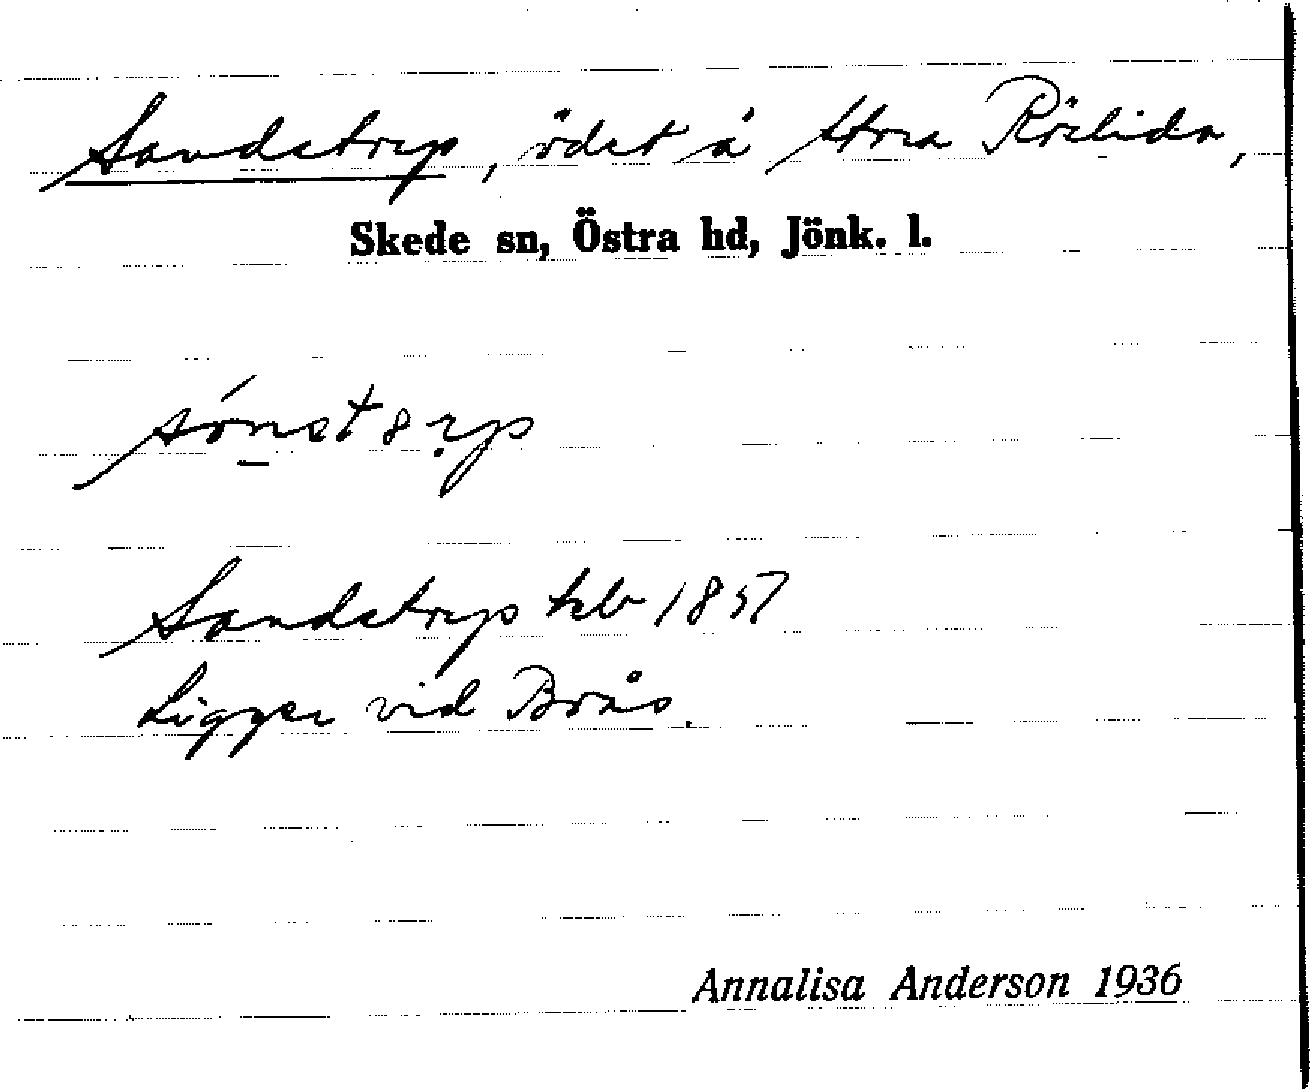 Sandstrep, ödet å Stora Röslida,
Skede sn, Östra hd, Jönk. l.
Sandstrep tsb 1857
Ligger vid Brås.
Annalisa Anderson 1936